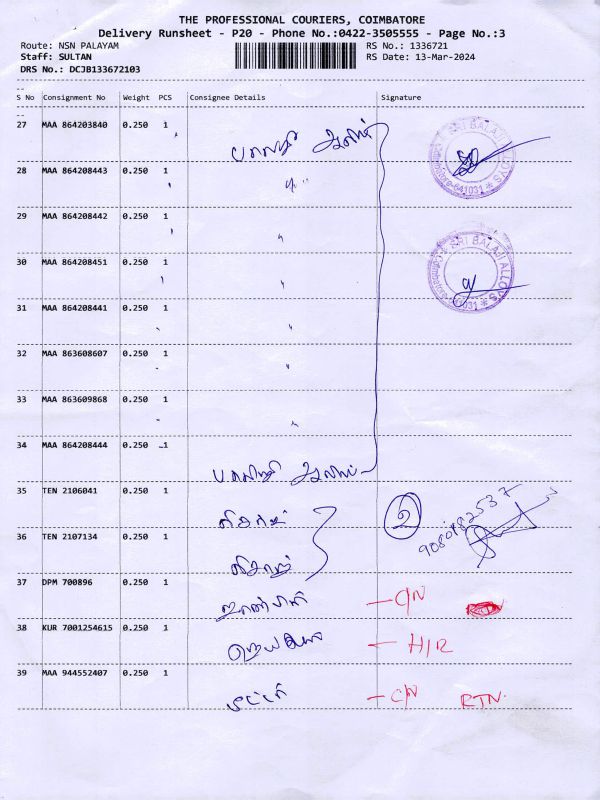 THE PROFESSIONAL COURIERS, COIMBATORE
Delivery Runsheet - P20 - Phone No.:0422-3505555 - Page No.:3
Route: NSN PALAYAM RS No.: 1336721
Staff: SULTAN RS Date: 13-Mar-2024
DRS No.: DCJB133672103
--
S No Consignment No Weight PCS Consignee Details Signature
--
27 MAA 864203840 0.250 1
SRI BALAJI ALLOYS
Coimbatore-641031
28 MAA 864208443 0.250 1 〃
29 MAA 864208442 0.250 1 〃
30 MAA 864208451 0.250 1 〃
SRI BALAJI ALLOYS
31 MAA 864208441 0.250 1 〃
32 MAA 863608607 0.250 1 〃
33 MAA 863609868 0.250 1 〃
34 MAA 864208444 0.250 1
35 TEN 2106041 0.250 1 2
36 TEN 2107134 0.250 1
37 DPM 700896 0.250 1 - C/N
38 KUR 7001254615 0.250 1 - H/R
39 MAA 944552407 0.250 1 - C/N RTN.